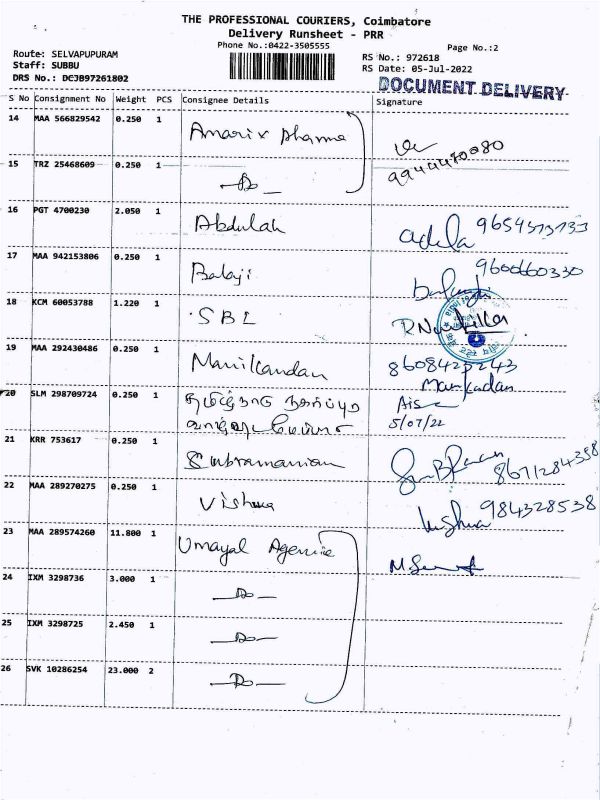 THE PROFESSIONAL COURIERS, Coimbatore
Delivery Runsheet - PRR
Phone No.:0422-3505555
Page No.:2
Route: SELVAPUPURAM
Staff: SUBBU
DRS No.: DCJB97261802
RS No.: 972618
RS Date: 05-Jul-2022
DOCUMENT DELIVERY
S No Consignment No Weight PCS Consignee Details Signature
14 MAA 566829542 0.250 1
9944470080
15 TRZ 25468609 0.250 1 -Do-
16 PGT 4700230 2.050 1 Abdulah
17 MAA 942153806 0.250 1 Balaji 9600660330
18 KCM 60053788 1.220 1 SBI
19 MAA 292430486 0.250 1 Manikandan
Manikadan
20 SLM 298709724 0.250 1 தமிழ்நாடு
5/07/22
21 KRR 753617 0.250 1 Subramanian 8671284358
22 MAA 289270275 0.250 1 Vishwa 984328538
23 MAA 289574260 11.800 1 Umayal Agencie
24 IXM 3298736 3.000 1 -Do-
25 IXM 3298725 2.450 1 -Do-
26 SVK 10286254 23.000 2 -Do-